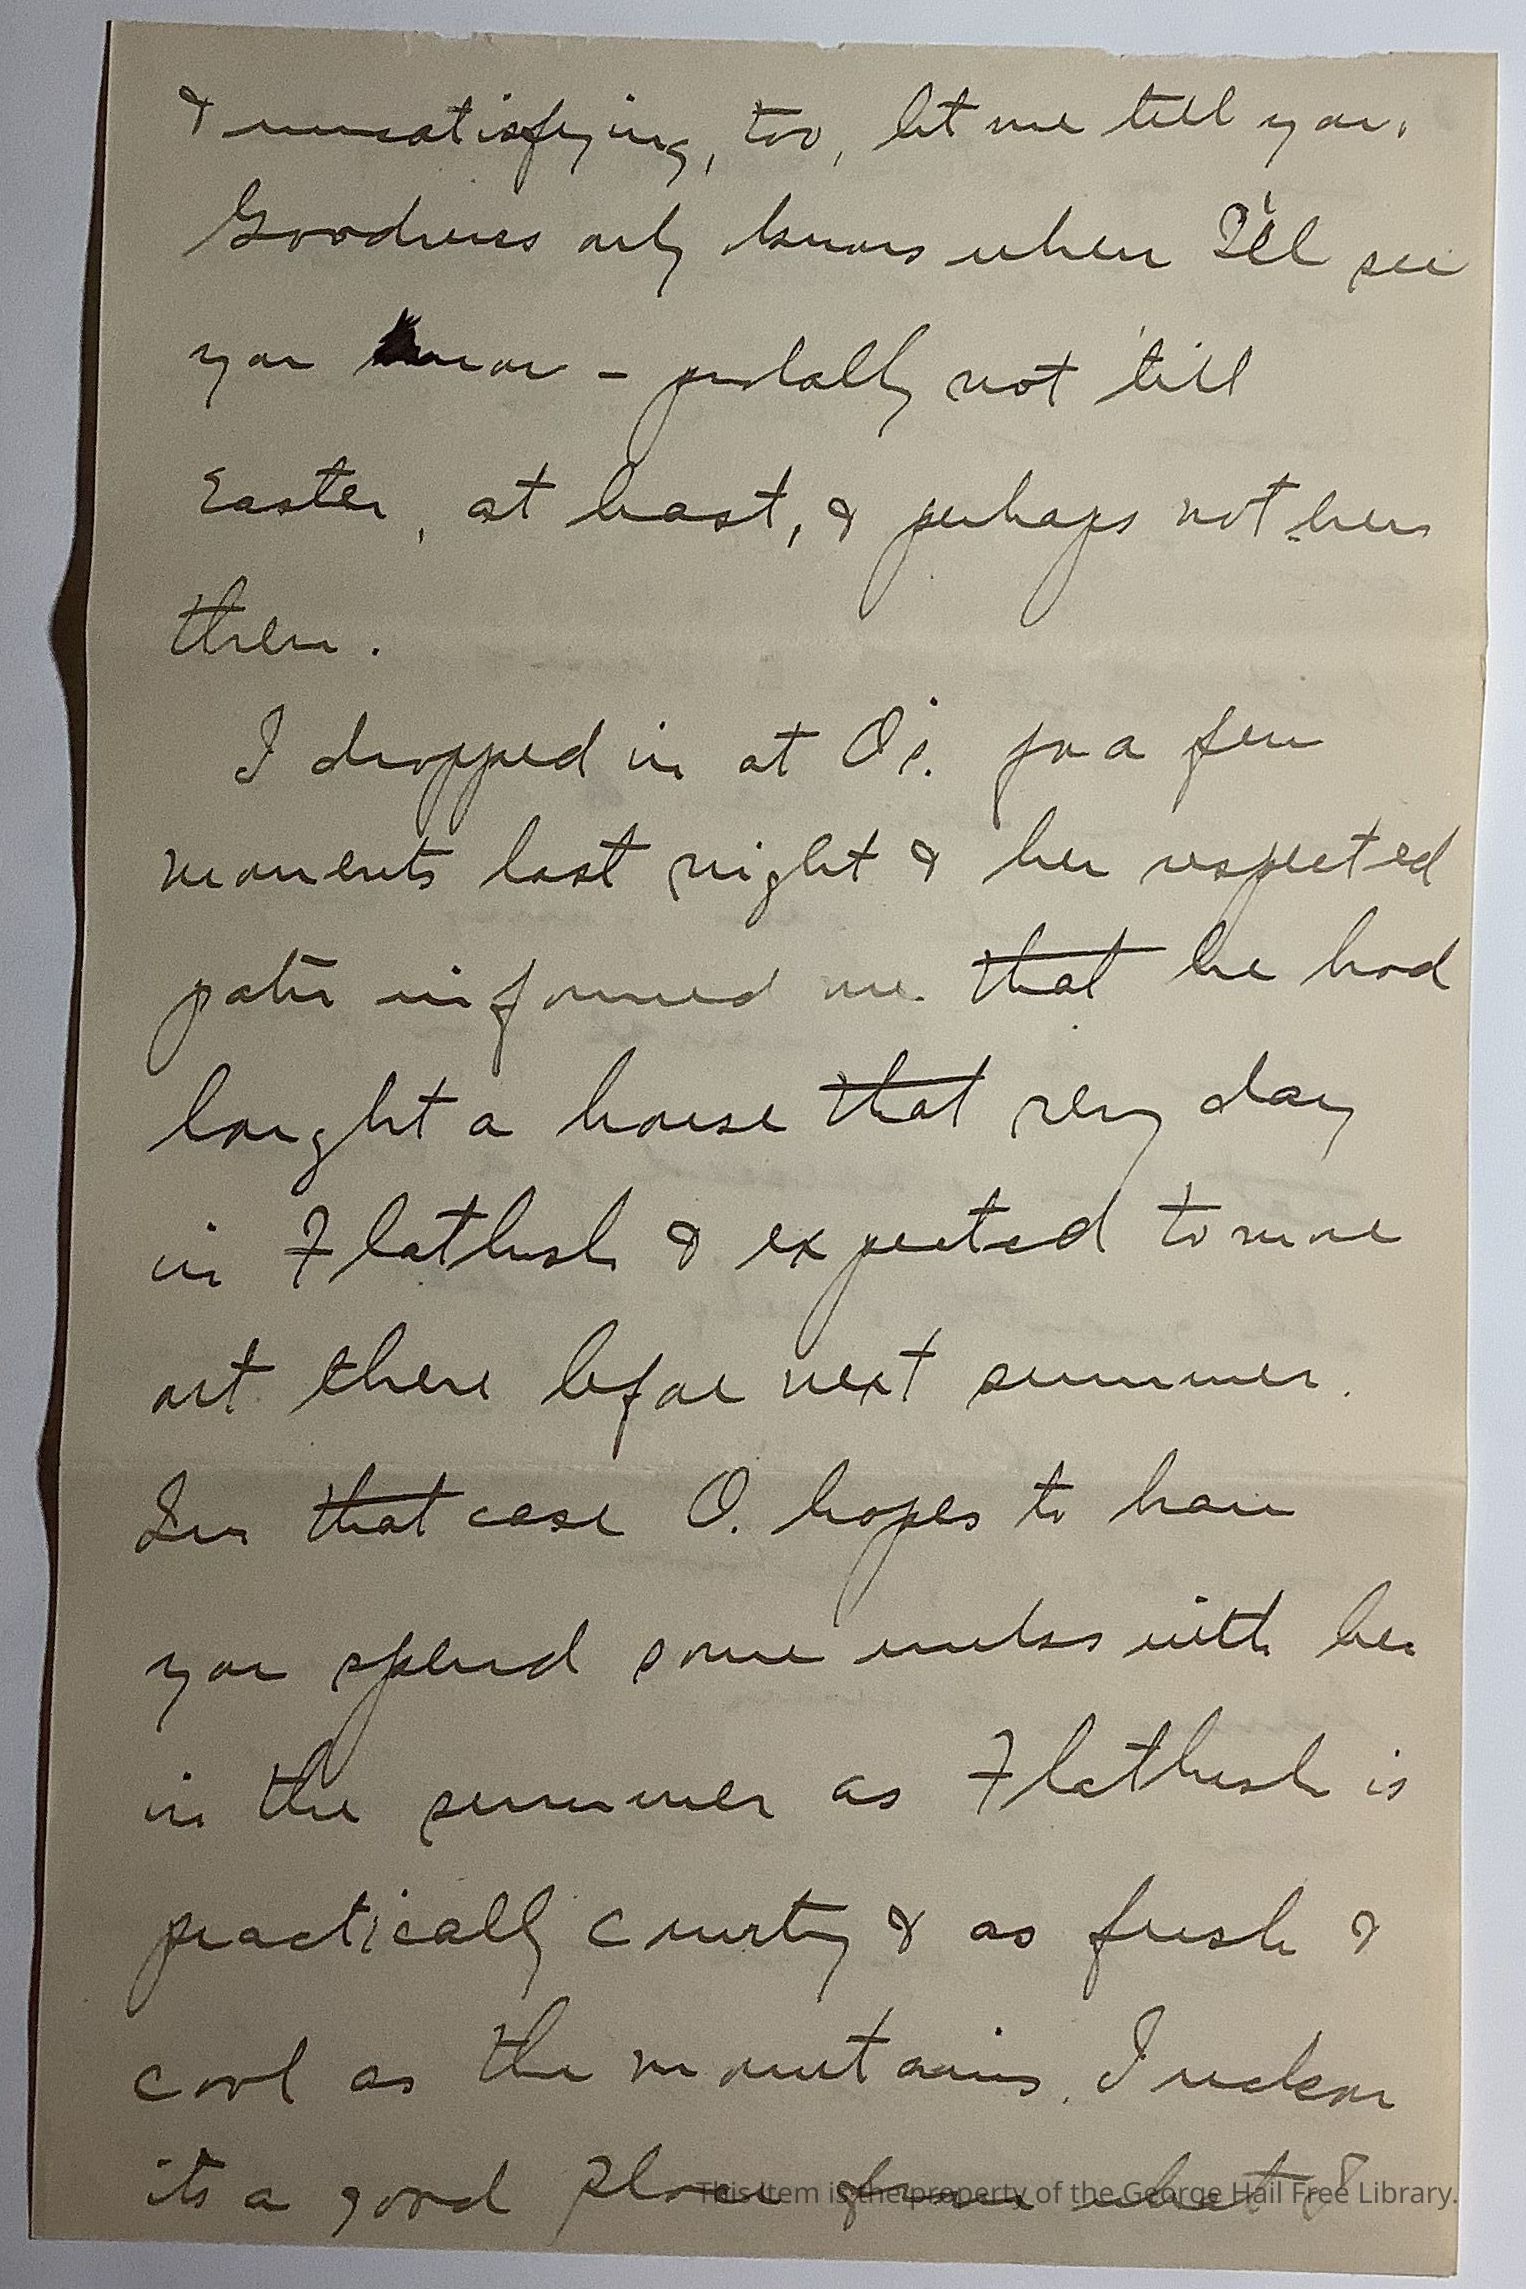 & unsatisfying, too, let me tell you.
Goodness only knows when I'll see
you now – probably not till
Easter, at least, & perhaps not here
then.
I dropped in at O's. for a few
moments last night & her respected
pater informed me that he had
bought a house that very day
in Flatbush & expected to move
out there before next summer.
In that case O. hopes to have
you spend some weeks with her
in the summer as Flatbush is
practically country & as fresh &
cool as the mountains. I reckon
its a good place from what I
This item is the property of the George Hail Free Library.